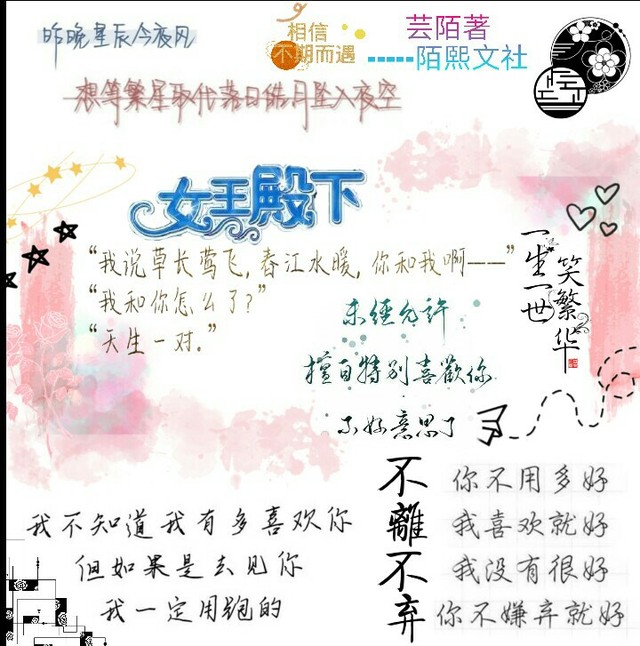 昨晚星辰今夜风
相信
不期而遇
芸陌著
陌熙文社
想等繁星取代落日皓月坠入夜空
女王殿下
“我说草长莺飞,春江水暖,你和我啊——”
“我和你怎么了?”
“天生一对。”
一生一世
笑繁华
未經允許
擅自特别喜歡你
不好意思了
我不知道我有多喜欢你
但如果是去见你
我一定用跑的
不離不弃
你不用多好
我喜欢就好
我没有很好
你不嫌弃就好